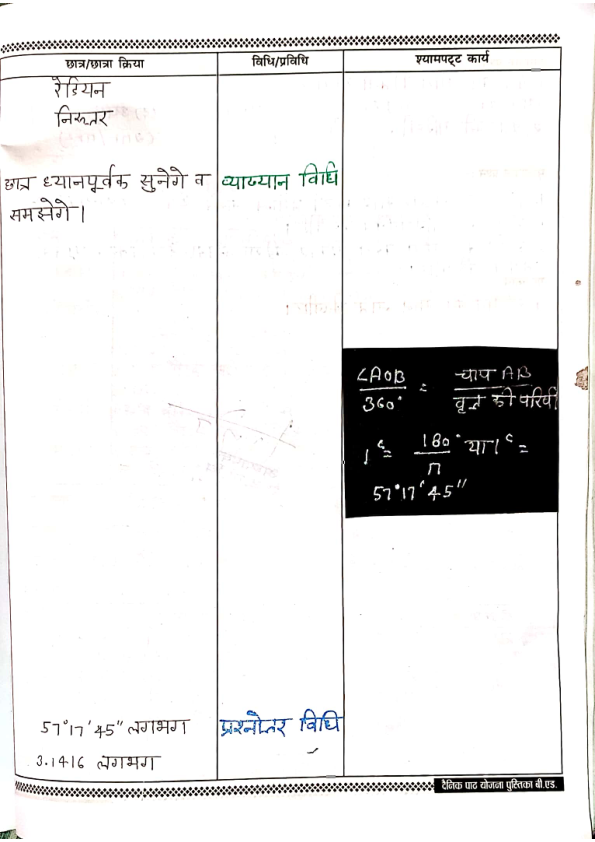 छात्र/छात्रा क्रिया
विधि/प्रविधि
श्यामपट्ट कार्य
रेडियन
निरूतर
छात्र ध्यानपूर्वक सुनेगे व
समझेगे।
व्याख्यान विधि
∠AOB / 360° = चाप AB / वृत की परिधी
1ᶜ = 180° / π या 1ᶜ =
57°17'45"
57°17'45" लगभग
3.1416 लगभग
प्रश्नोतर विधि
दैनिक पाठ योजना पुस्तिका बी.एड.